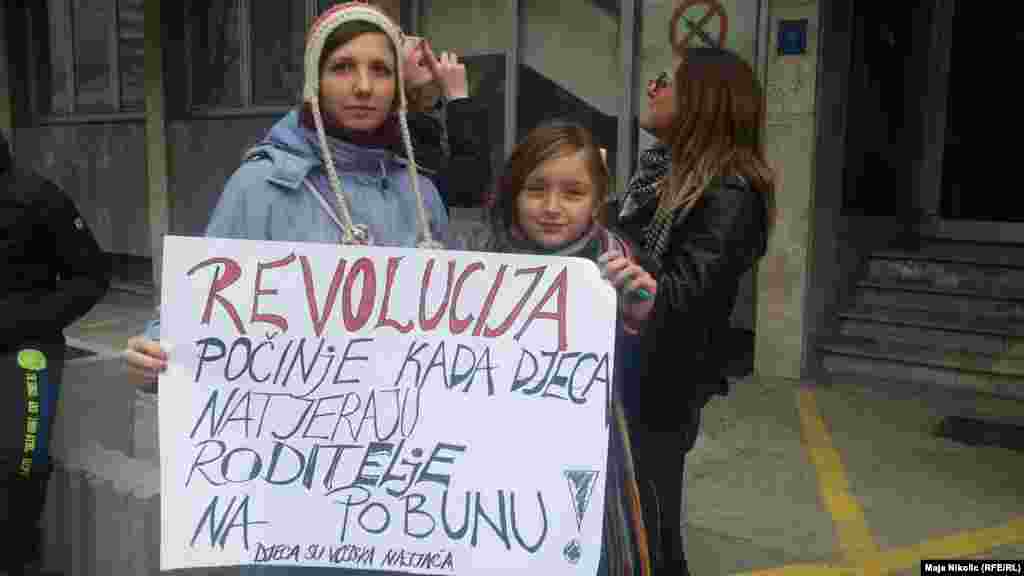 REVOLUCIJA
POČINJE KADA DJECA
NATJERAJU
RODITELJE
NA POBUNU
DJECA SU VOJSKA NAJJAČA
Maja Nikolic (RFE/RL)